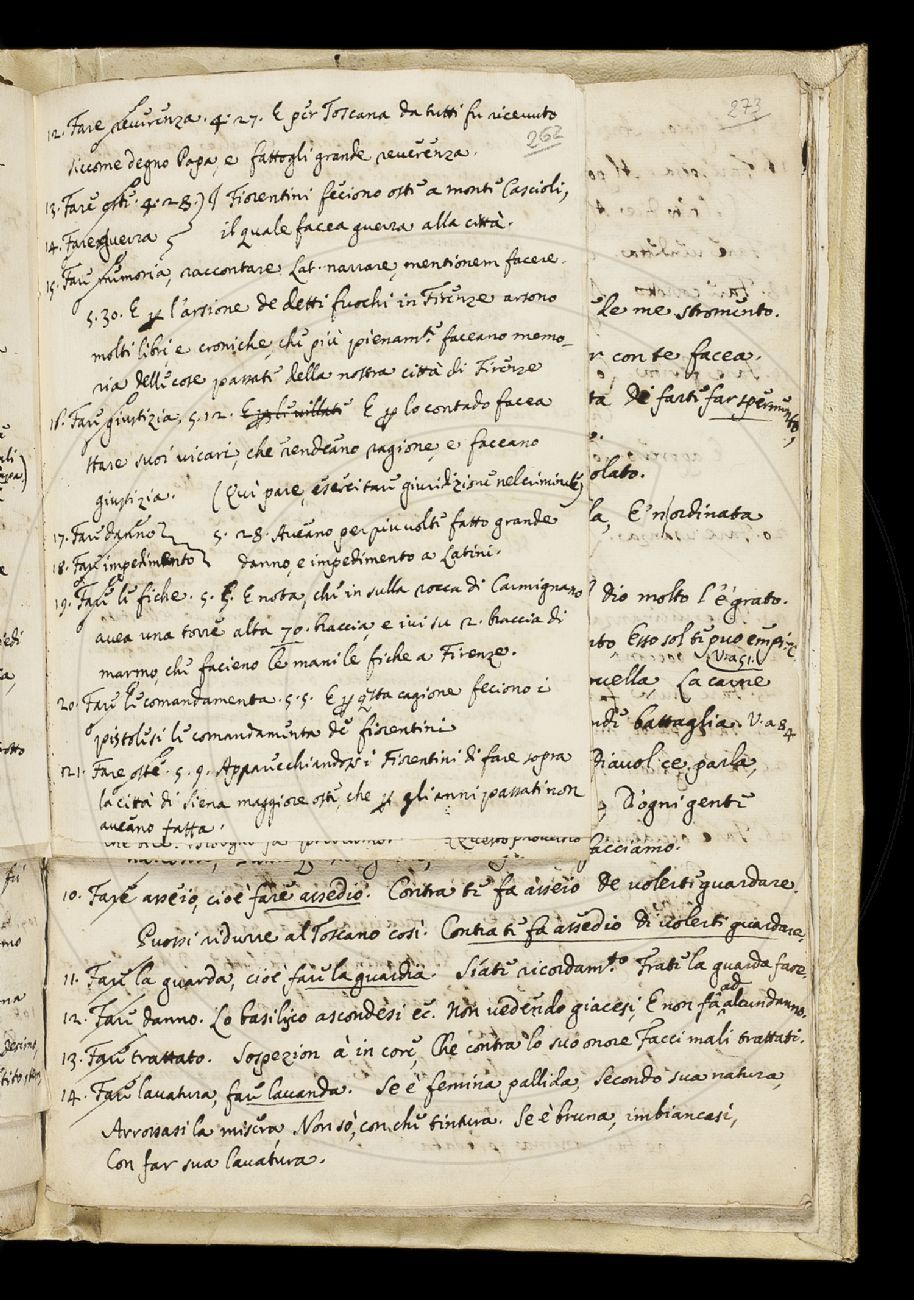 262
12. Fare reverenza. 4. 27. E per Toscana da tutti fu ricevuto
siccome degno Papa, e fattogli grande reverenza.
13. Fare oste. 4. 28.) I Fiorentini feciono oste a monte Cascioli,
14. Fare guerra } il quale facea guerra alla città.
15. Fare memoria, raccontare Lat. narrare, mentionem facere.
5. 30. E p l'arsione de detti fuochi in Firenze arsono
molti libri, e croniche, che più pienamte. faceano memo-
ria delle cose passate della nostra città di Firenze
16. Fare giustizia, 5. 12. E p lo contado facea
stare suoi vicari, che rendeano ragione, e faceano
giustizia. (Qui pare, esercitare giuridizione nel criminale)
17. Fare danno } 5. 28. Aveano per piu volte fatto grande
18. Fare impedimento } danno, e impedimento a Latini.
19. Fare le fiche. 5. E nota, che in sulla rocca di Carmignano
avea una torre alta 70. braccia, e ivi su 2. braccia di
marmo, che facieno le mani le fiche a Firenze.
20. Fare le comandamenta. 5. 5. E p qsta cagione feciono i
pistolesi le comandamenta de fiorentini
21. Fare oste. 5. 9. Apparecchiandosi i Fiorentini di fare sopra
la città di Siena maggiore oste, che p gli anni passati non
aveano fatta.
273
le me stromento.
r con te facea.
ta di farti far sperimento,
olato.
la, E' n ordinata
dio molto l'è grato.
nto, Esso sol ti puo empire
V. a 51.
uella, La carne
battaglia. V. a 84
Diavol ce parla,
, D'ogni gente
facciamo.
10. Fare asseio, cioè fare assedio. Contra te fa asseio De volerti guardare.
Puossi ridurre al Toscano così. Contra te fa assedio di volerti guardare.
11. Fare la guarda, cioè fare la guardia. Siate ricordamto Frate la guarda fare.
12. Fare danno. Lo basilico ascondesi ec. Non vedendo giacesi, E non fa ad alcun danno.
13. Fare trattato. Sospezion à in core, Che contra lo suo onore Facci mali trattati.
14. Fare lavatura, fare lavanda. Se è femina pallida, Secondo sua natura,
Arrossasi la misera, Non sò, con che tintura. Se è bruna, imbiancasi,
Con far sua lavatura.